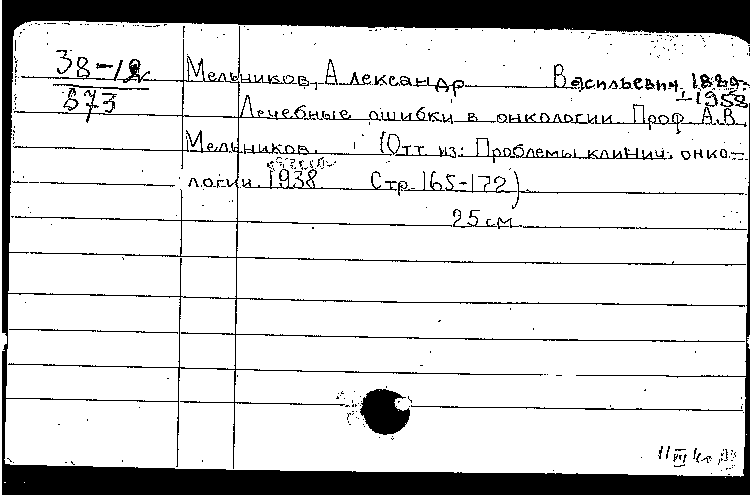 38-12
573
Мельников, Александр Васильевич, 1889-
1958
Лечебные ошибки в онкологии. Проф. А.В.
Мельников. (Отт. из: Проблемы клинич. онко-
логии. 1938. Стр. 165-172)
25 см.